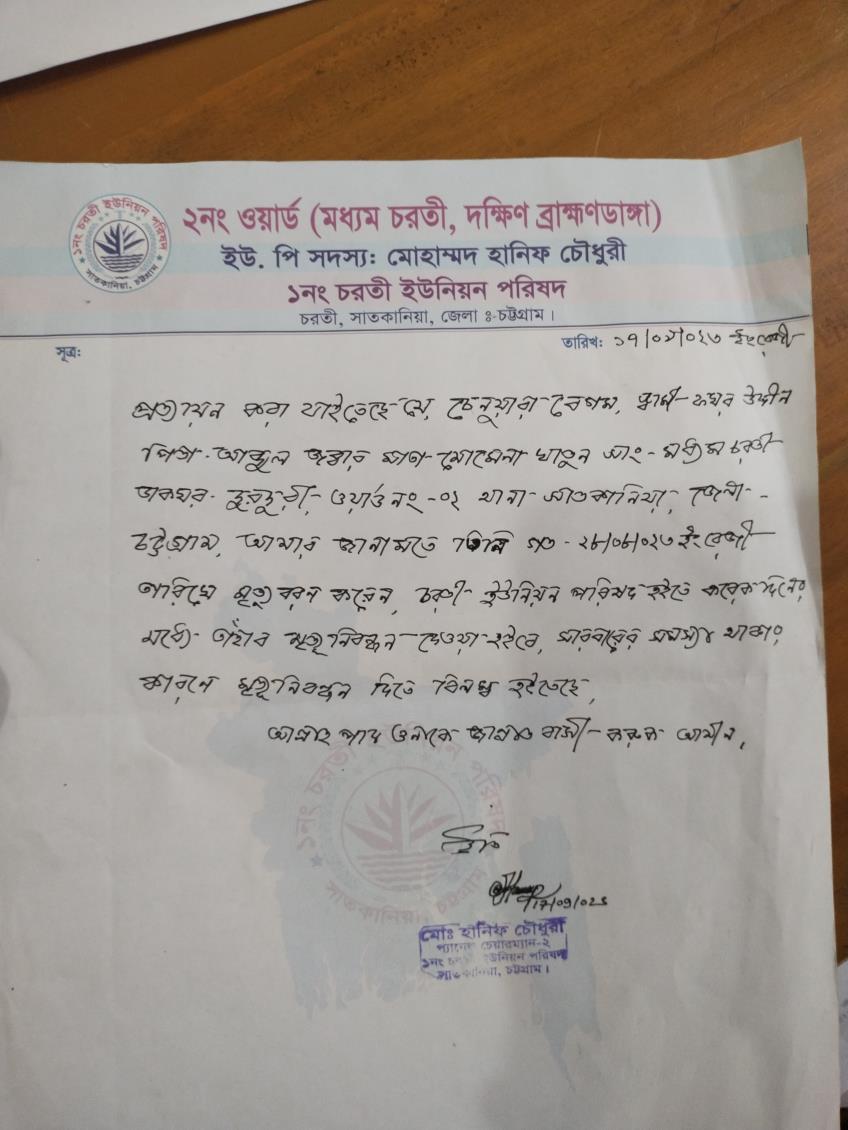 ২নং ওয়ার্ড (মধ্যম চরতী, দক্ষিণ ব্রাহ্মণডাঙ্গা)
ইউ. পি সদস্য: মোহাম্মদ হানিফ চৌধুরী
১নং চরতী ইউনিয়ন পরিষদ
চরতী, সাতকানিয়া, জেলা ঃ-চট্টগ্রাম।
১নং চরতী ইউনিয়ন পরিষদ
সাতকানিয়া, চট্টগ্রাম
সূত্র:
তারিখ: ১৭/০৯/০২৩ ইংরেজী
প্রত্যয়ন করা যাইতেছে যে, চেনুয়ারা বেগম, স্বামী- কমর উদ্দীন
পিতা- আব্দুল জব্বার মাতা- মোমেনা খাতুন সাং- মধ্যম চরতী
ডাকঘর- তুলতুলী- ওয়ার্ড নং -০২ থানা- সাতকানিয়া, জেলা-
চট্টগ্রাম, আমার জানামতে তিনি গত - ২৮/০৮/০২৩ ইংরেজী
তারিখে মৃত্যু বরন করেন, চরতী- ইউনিয়ন পরিষদ হইতে কয়েক দিনের
মধ্যে- তাঁহার মৃত্যু নিবন্ধন দেওয়া হইবে, সারবারের সমস্যা থাকার
কারনে মৃত্যু নিবন্ধন দিতে বিলম্ব হইতেছে,
আল্লাহ পাক ওনাকে জান্নাত বাসী- করুক আমীন,
১নং চরতী ইউনিয়ন পরিষদ
সাতকানিয়া, চট্টগ্রাম
ইতি
17/09/023
মোঃ হানিফ চৌধুরী
প্যানেল চেয়ারম্যান-২
১নং ইউনিয়ন পরিষদ
সাতকানিয়া, চট্টগ্রাম।